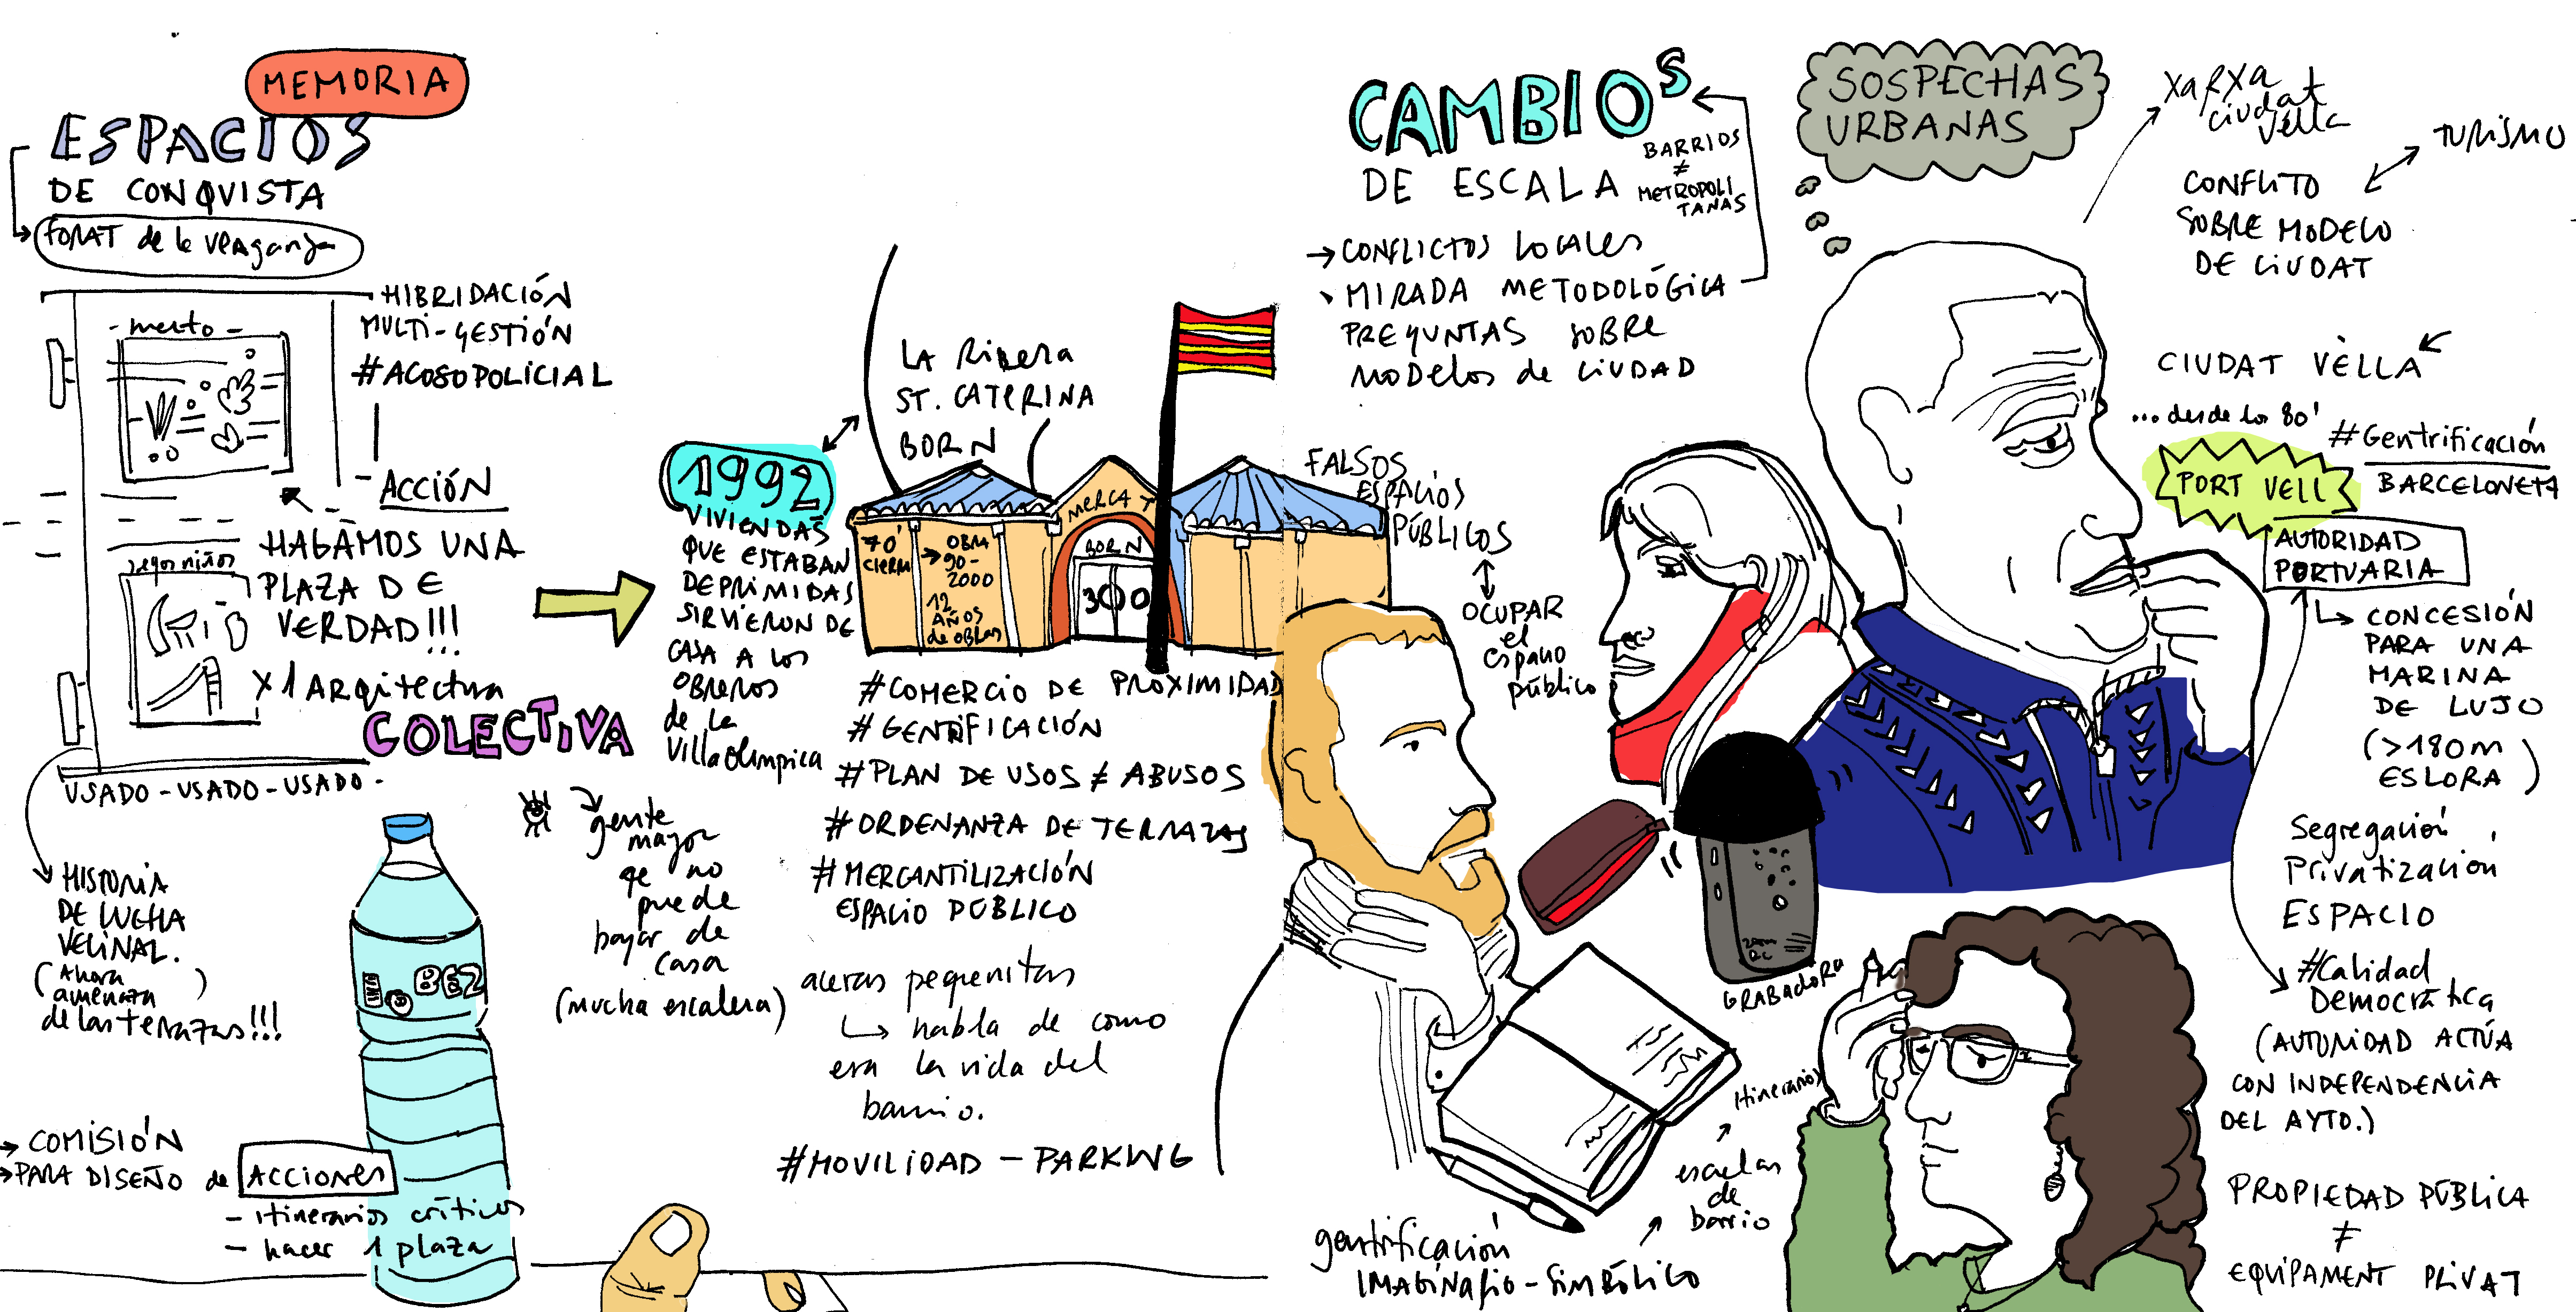 MEMORIA
ESPACIOS
DE CONQUISTA
FORAT de la
HIBRIDACIÓN
MULTI-GESTIÓN
#ACOSO POLICIAL
- ACCIÓN
HAGAMOS UNA
PLAZA DE
VERDAD!!!
X 1 ARQitectura
COLECTIVA
USADO - USADO - USADO -
HISTORIA
DE LUCHA
VECINAL.
(Ahora
amenaza)
de las terrazas!!!
→ COMISIÓN
→ PARA DISEÑO de ACCIONES
- itinerarios críticos
- hacer 1 plaza
gente
mayor
qe no
puede
bajar de
casa
(mucha escalera)
1992
VIVIENDAS
QUE ESTABAN
DEPRIMIDAS
SIRVIERON DE
CASA A LOS
OBREROS
de la
Villa Olímpica
LA RIBERA
ST. CATERINA
BORN
MERCAT
BORN
300
70'
CIERRA
→ OBRA
90-
2000
12
AÑOS
de OBRAS
#COMERCIO DE PROXIMIDAD
#GENTRIFICACIÓN
#PLAN DE USOS ≠ ABUSOS
#ORDENANZA DE TERRAZAS
#MERCANTILIZACIÓN
ESPACIO PÚBLICO
aceras pequeñitas
habla de como
era la vida del
barrio.
#MOVILIDAD - PARKING
CAMBIOS
DE ESCALA
BARRIOS
≠
METROPOLI
TANAS
→ CONFLICTOS LOCALES
MIRADA METODOLÓGICA
PREGUNTAS SOBRE
MODELOS de CIUDAD
FALSOS
ESPACIOS
PÚBLICOS
OCUPAR
el
espacio
público
GRABADORA
itinerarios
escuelas
de
barrio
gentrificación
IMAGINARIO - SIMBÓLICO
SOSPECHAS
URBANAS
XARXA
CIUDAT
VELLA
TURISMO
CONFLITO
SOBRE MODELO
DE CIUDAT
CIUDAT VÈLLA
...desde los 80'
#Gentrificación
BARCELONETA
PORT VELL
AUTORIDAD
PORTUARIA
CONCESIÓN
PARA UNA
MARINA
DE LUJO
(>180m
ESLORA)
Segregación
Privatización
ESPACIO
#Calidad
Democrática
(AUTORIDAD ACTÚA
CON INDEPENDENCIA
DEL AYTO.)
PROPIEDAD PÚBLICA
≠
EQUIPAMENT PRIVAT